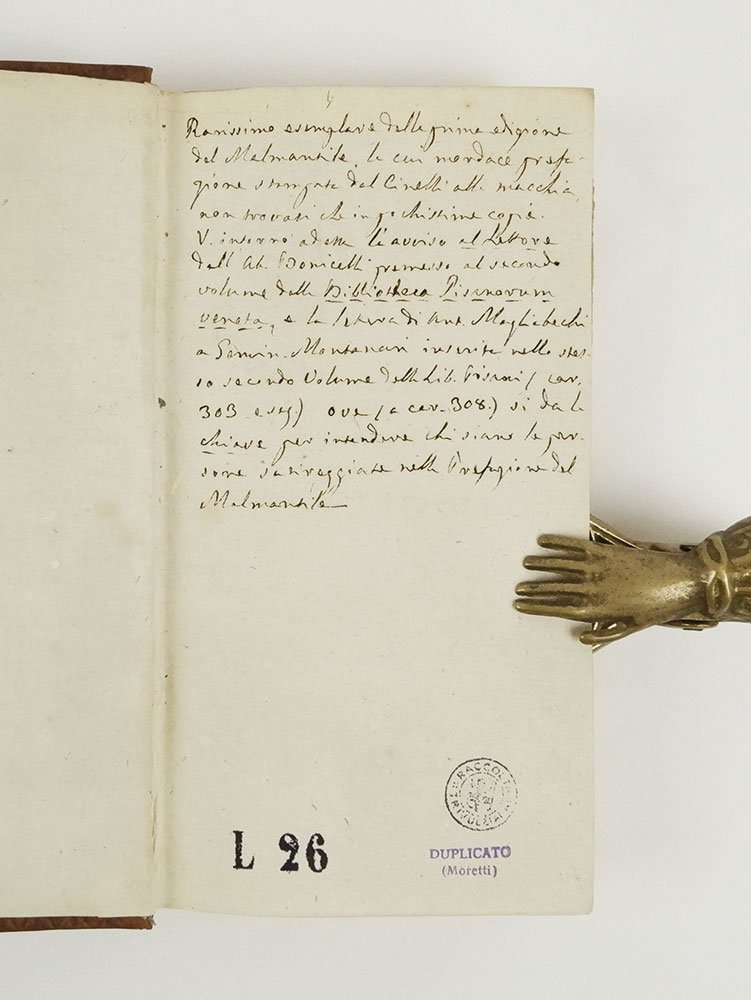 Rarissimo esemplare della prima edizione
del Malmantile, la cui mordace prefa-
zione stampata dal Cinelli alla macchia,
non trovasi che in pochissime copie.
V. intorno ad essa l'avviso al Lettore
dell'Ab. Bonicelli premesso al secondo
volume della Bibliotheca Pisanorum
veneta, e la lettera di Ant. Magliabechi
a Gemin. Montanari inserita nello stes-
so secondo Volume della Lib. Pisani (car.
303 e seg.) ove (a car. 308.) si da la
chiave per intendere chi siano le per-
sone satireggiate nella Prefazione del
Malmantile
RACCOL
L 26
DUPLICATO
(Moretti)